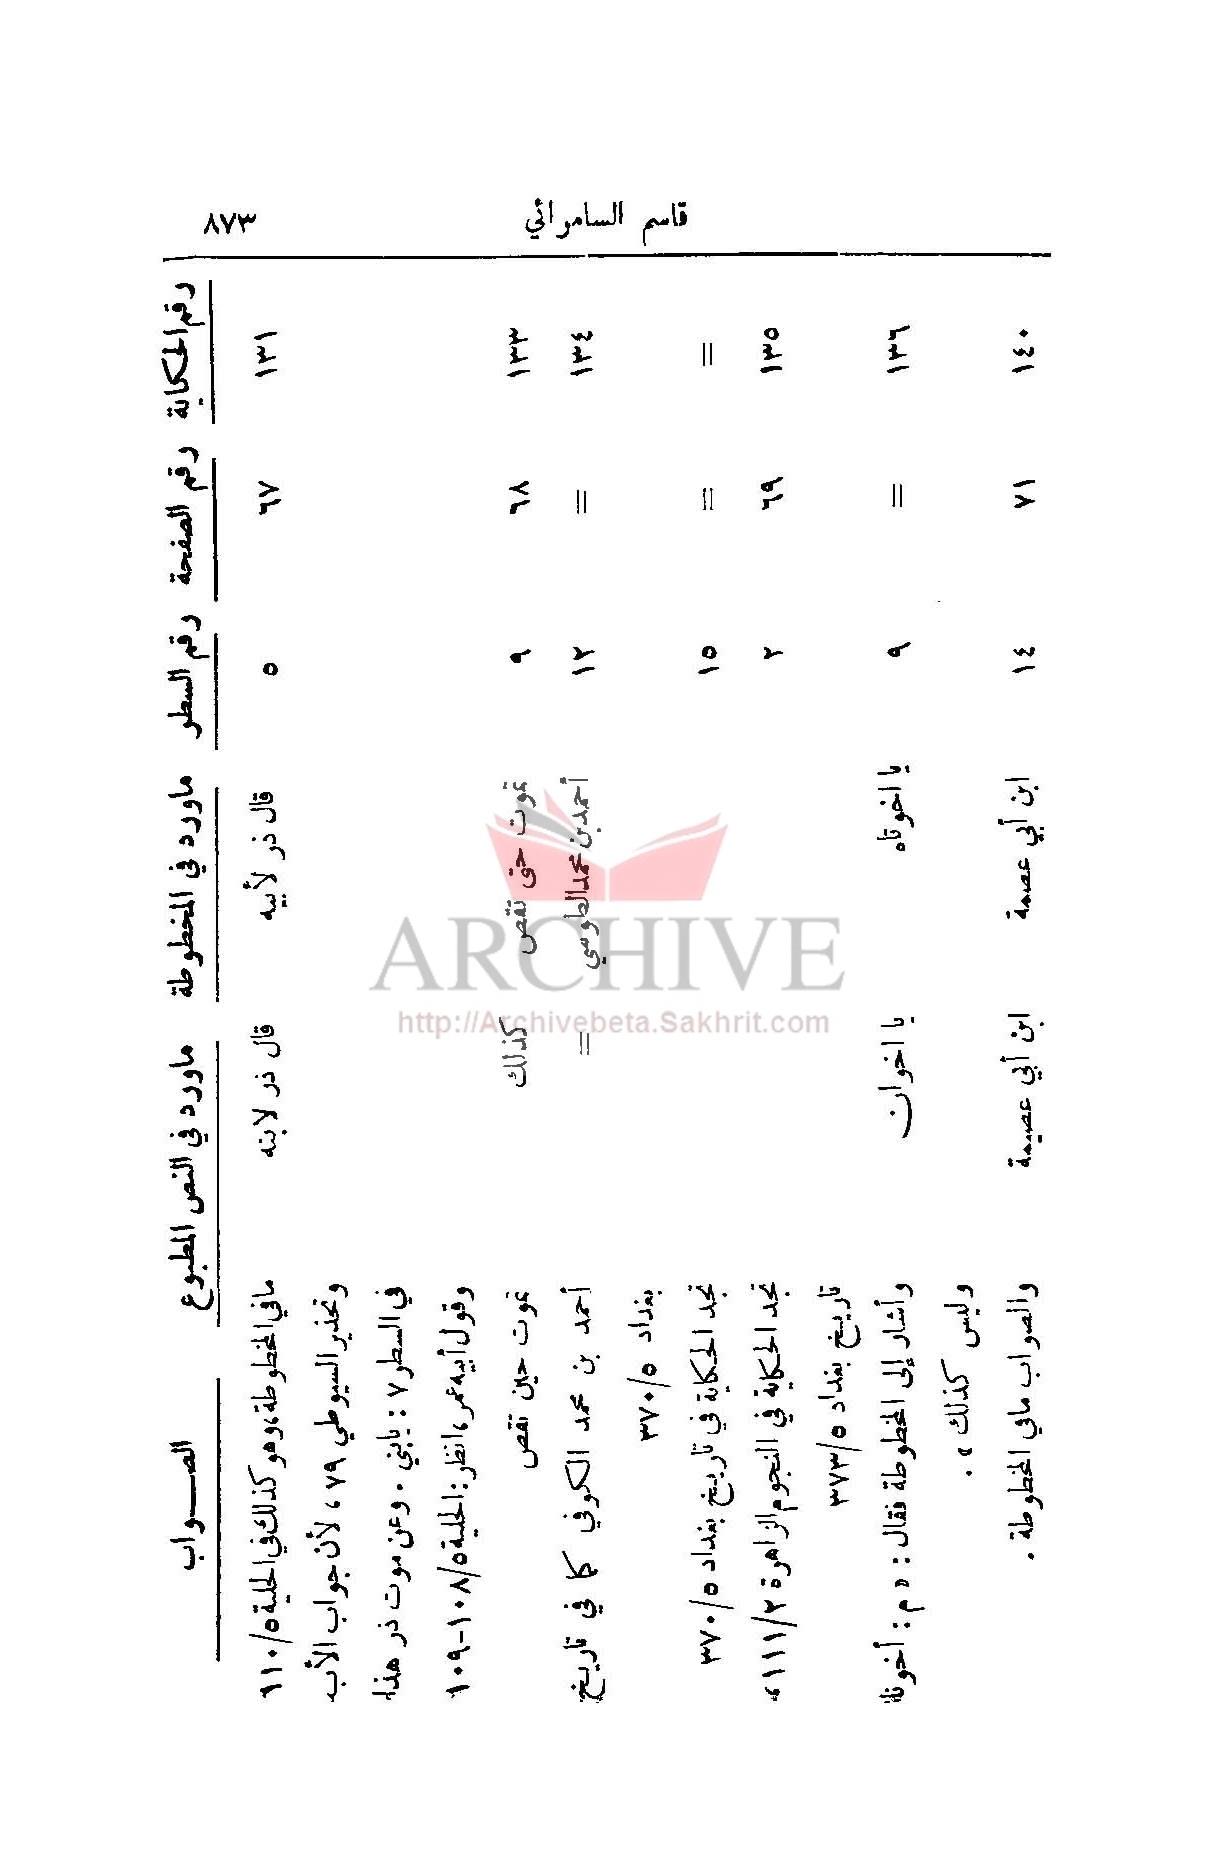 ٨٧٣
قاسم السامرائي
رقم الحكاية رقم الصفحة رقم السطر ماورد في المخطوطة ماورد في النص المطبوع الصـــواب
١٣١ ٦٧ ٥ قال ذر لأبيه قال ذر لابنه مافي المخطوطة، وهو كذلك في الحلية ١١٠/٥
وتحذير السيوطي ٧٩، لأن جواب الأب
في السطر ٧ : يابني . وعن موت ذر هذا
وقول أبيه عمر، انظر : الحلية ١٠٨/٥-١٠٩
١٣٣ ٦٨ ٩ تموت حتى تقص كذلك تموت حين تقص
١٣٤ = ١٢ أحمد بن محمد الطوسي = أحمد بن محمد الكوفي كما في تاريخ
بغداد ٣٧٠/٥
= = ١٥ نجد الحكاية في تاريخ بغداد ٣٧٠/٥
١٣٥ ٦٩ ٢ نجد الحكاية في النجوم الزاهرة ١١١/٢،
تاريخ بغداد ٣٧٣/٥
١٣٦ = ٩ يا اخوتاه يا اخوان وأشار إلى المخطوطة فقال : « م : أخوتا
وليس كذلك » .
١٤٠ ٧١ ١٤ ابن أبي عصمة ابن أبي عصيمة والصواب مافي المخطوطة .
ARCHIVE
http://Archivebeta.Sakhrit.com